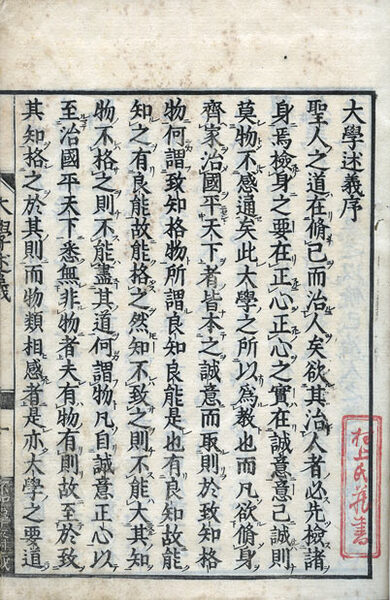 大學述義序
聖人之道在脩己而治人矣欲其治人者必先檢諸
身焉檢身之要在正心正心之實在誠意意已誠則
莫物不感通矣此大學之所以為教也而凡欲脩身
齊家治國平天下者皆本之誠意而取則於致知格
物何謂致知格物所謂良知良能是也有良知故能
知之有良能故能格之然知不致之則不能大其知
物不格之則不能盡其道何謂物凡自誠意正心以
至治國平天下悉無非物者夫有物有則故至於致
其知格之於其則而物類相感者是亦大學之要道
大學述義
村上氏藏書